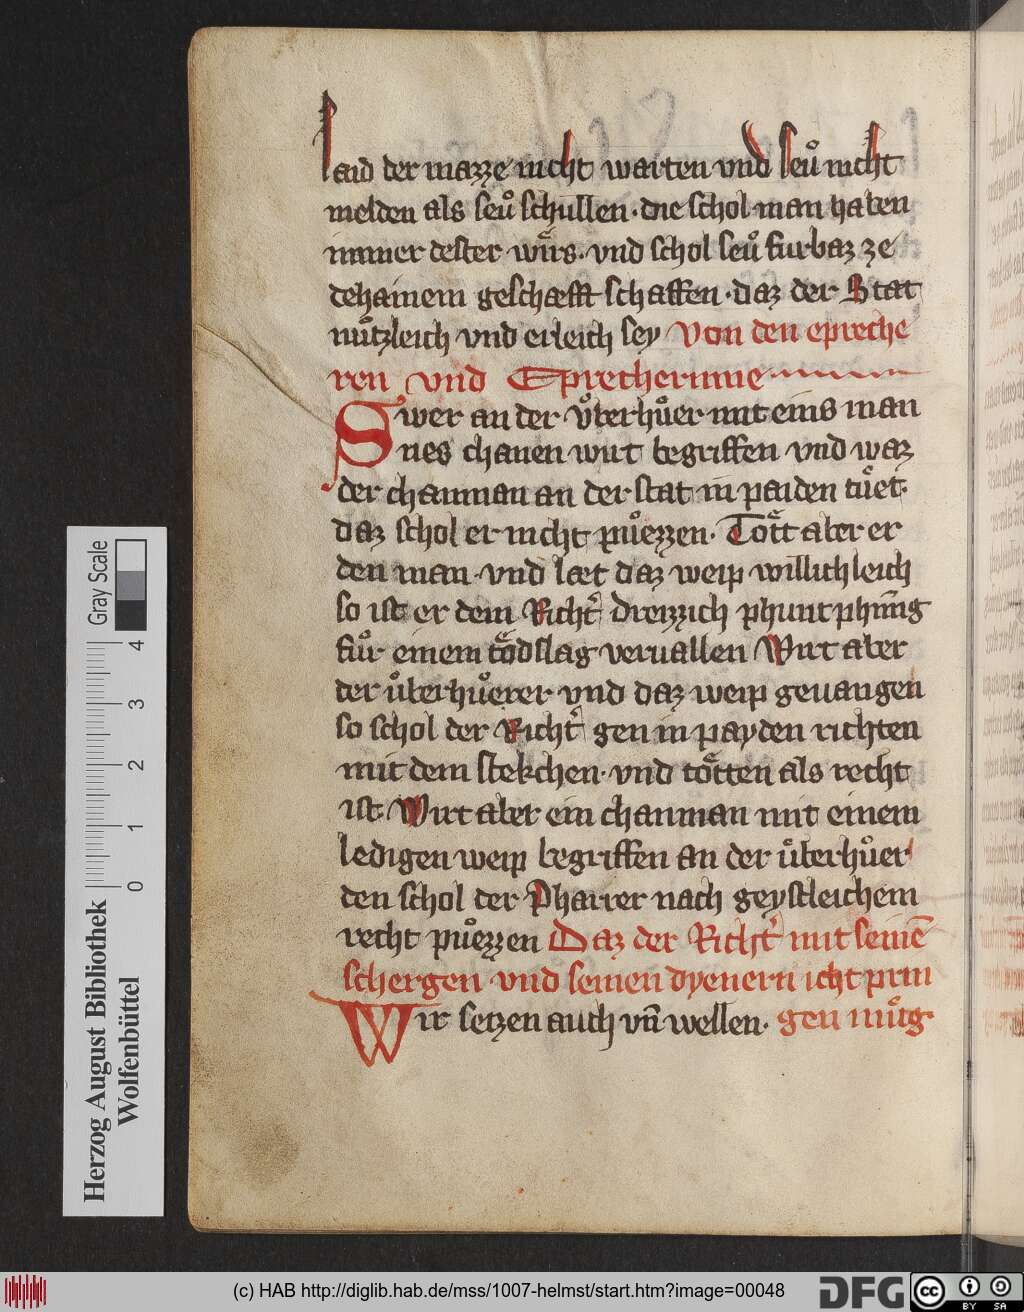 laid der mazze nicht warten vnd seuͦ nicht
melden als seuͦ schullen · die schol man haben
immer dester wǟrs · vnd schol seuͦ furbaz ze
dehainem geschæfft schaffen · daz der Stat
nuͤtzleich vnd erleich sey Von den epreche
ren vnd Eprecherinne
Swer an der vͤberhuͦer mit eins man
nes chauen wirt begriffen vnd waz
der chauman an der stat in paiden tuͤet ·
daz schol er nicht puͦezzen · Toͤtt aber er
den man · vnd læt daz weip willichleich
so ist er dem Richt̓ dreizzich phunt phīng
fuͦr einem toͤdslag veruallen Wirt aber
der uͤberhuͦerer vnd daz weip geuangen
so schol der Richt̓ gen in payden richten
mit dem stekchen · vnd toͤtten als recht
ist · Wirt aber ein chauman mit einem
ledigen weip begriffen an der uͤberhuͦer
den schol der Pharrer nach geystleichem
recht puͦezzen Daz der Richt̓ mit seinē
schergen · vnd seinen dyenern icht prin
Wir setzen auch vn̄ wellen · gen muͤg
Herzog August Bibliothek
Wolfenbüttel
Gray Scale
0 1 2 3 4
(c) HAB http://diglib.hab.de/mss/1007-helmst/start.htm?image=00048
DFG
cc BY SA